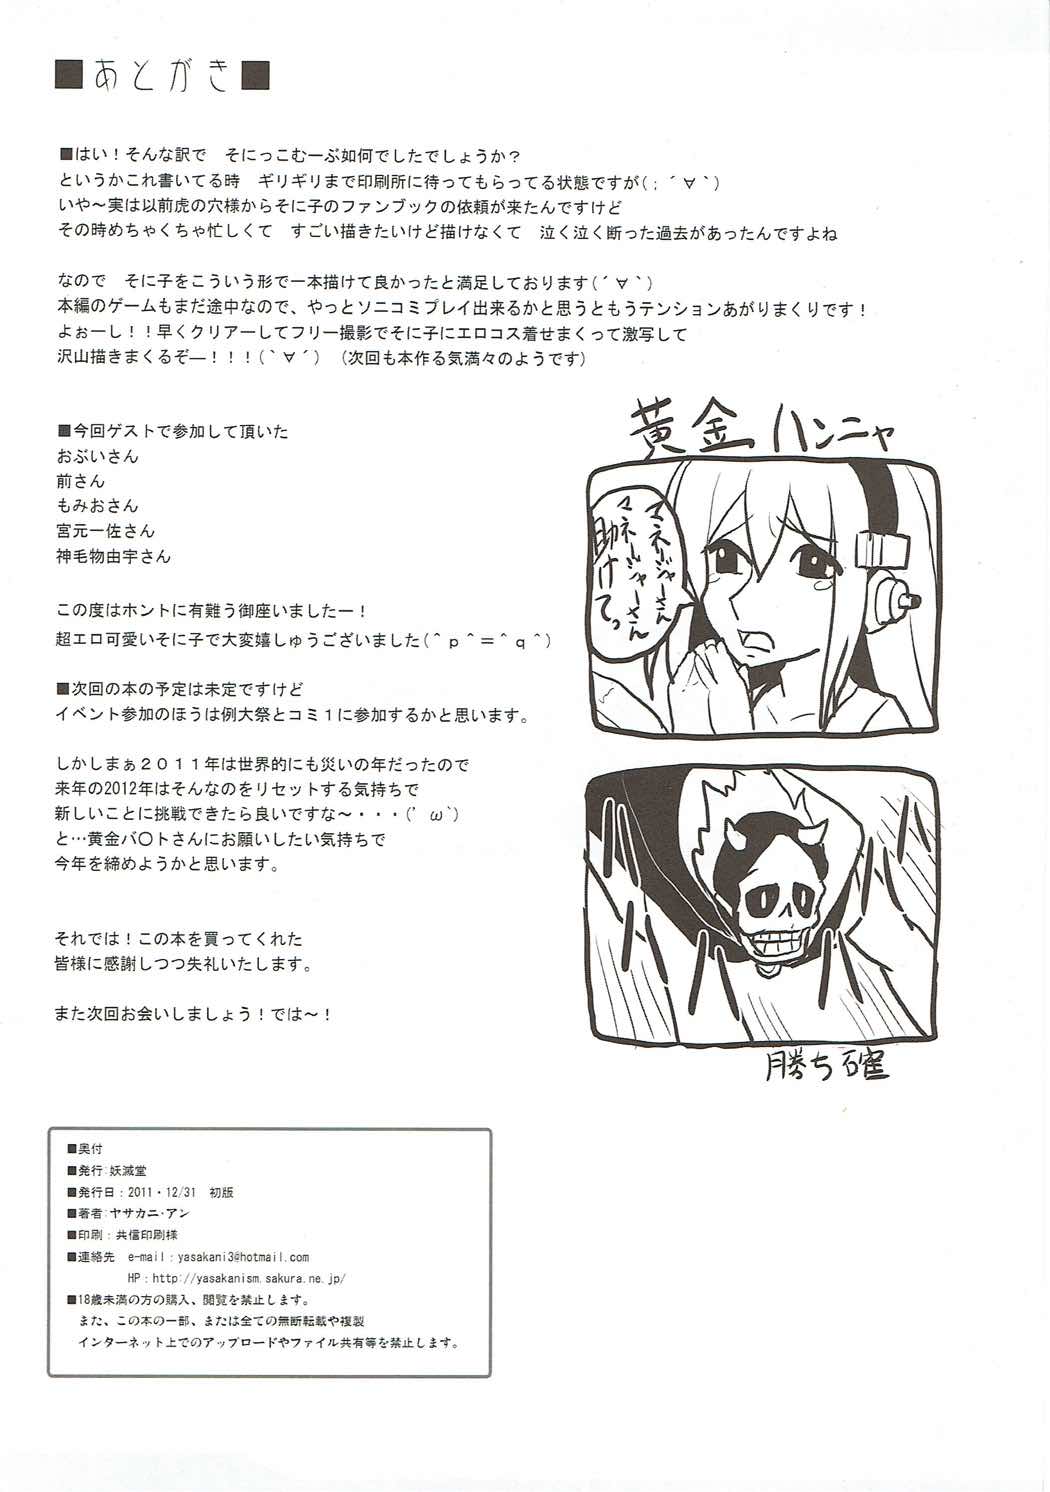 ■あとがき■
■はい！そんな訳で　そにっこむーぶ如何でしたでしょうか？
というかこれ書いてる時　ギリギリまで印刷所に待ってもらってる状態ですが(；´∀｀)
いや～実は以前虎の穴様からそに子のファンブックの依頼が来たんですけど
その時めちゃくちゃ忙しくて　すごい描きたいけど描けなくて　泣く泣く断った過去があったんですよね
なので　そに子をこういう形で一本描けて良かったと満足しております(´∀｀)
本編のゲームもまだ途中なので、やっとソニコミプレイ出来るかと思うともうテンションあがりまくりです！
よぉーし！！早くクリアーしてフリー撮影でそに子にエロコス着せまくって激写して
沢山描きまくるぞ―！！！(｀∀´)　(次回も本作る気満々のようです)
■今回ゲストで参加して頂いた
おぶいさん
前さん
もみおさん
宮元一佐さん
神毛物由宇さん
この度はホントに有難う御座いましたー！
超エロ可愛いそに子で大変嬉しゅうございました(＾ｐ＾＝＾ｑ＾)
■次回の本の予定は未定ですけど
イベント参加のほうは例大祭とコミ１に参加するかと思います。
しかしまぁ２０１１年は世界的にも災いの年だったので
来年の2012年はそんなのをリセットする気持ちで
新しいことに挑戦できたら良いですな～・・・(’ω`)
と…黄金バ〇トさんにお願いしたい気持ちで
今年を締めようかと思います。
それでは！この本を買ってくれた
皆様に感謝しつつ失礼いたします。
また次回お会いしましょう！では～！
黄金ハンニャ
マネージャーさん
マネージャーさん
助けてっ
勝ち確
■奥付
■発行：妖滅堂
■発行日：2011・12/31　初版
■著者：ヤサカニ・アン
■印刷：共信印刷様
■連絡先　e-mail：yasakani3@hotmail.com
HP：http://yasakanism.sakura.ne.jp/
■18歳未満の方の購入、閲覧を禁止します。
また、この本の一部、または全ての無断転載や複製
インターネット上でのアップロードやファイル共有等を禁止します。